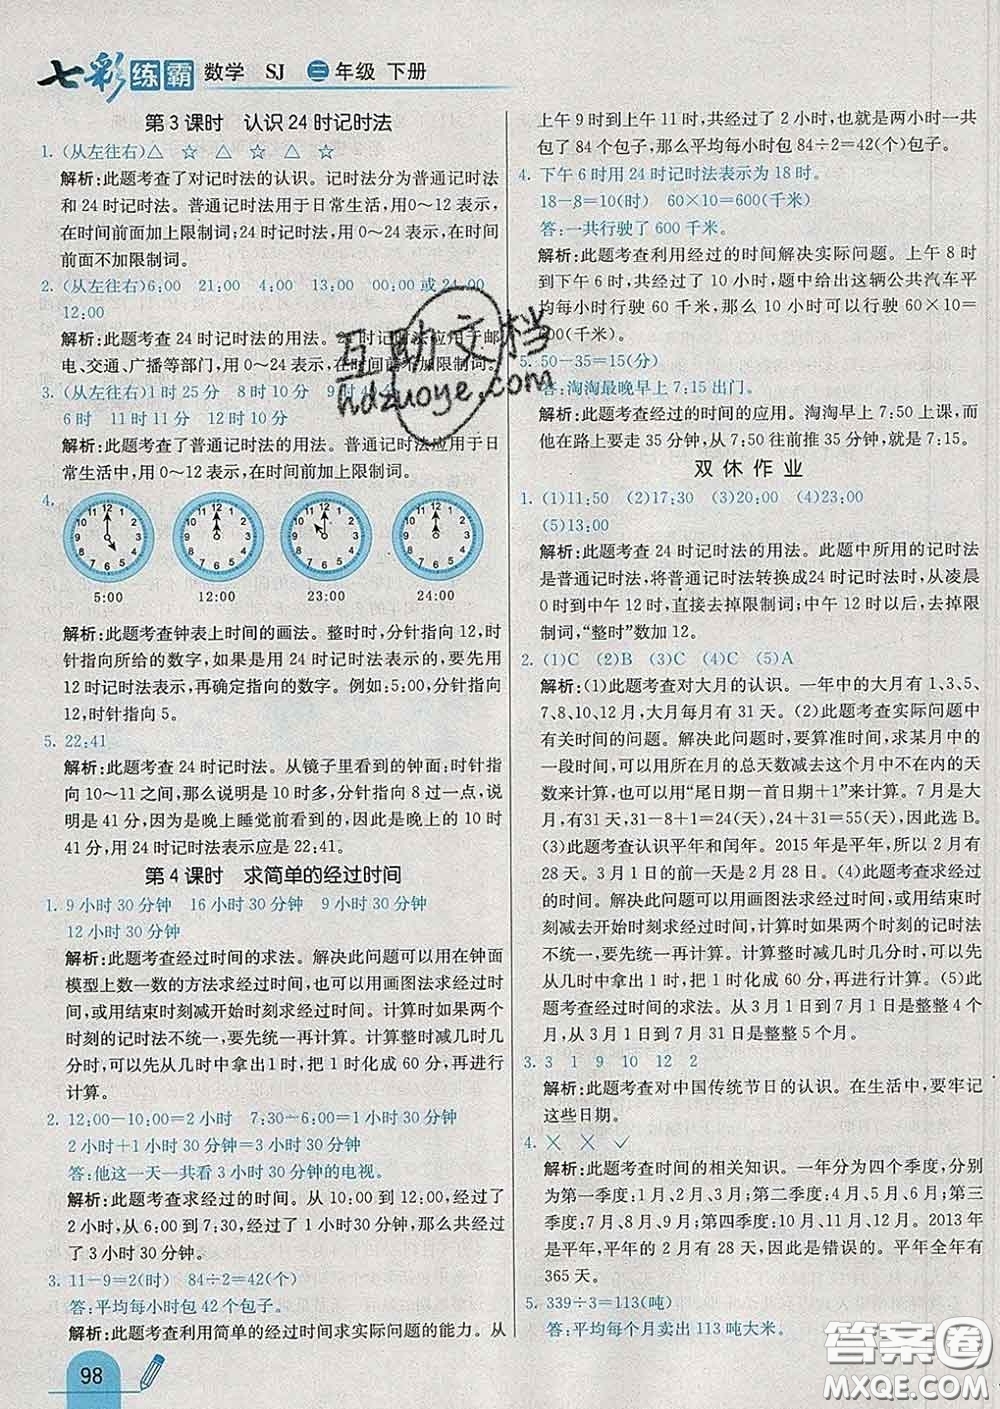 七彩练霸 数学 SJ 三年级 下册
第3课时 认识24时记时法
1. (从左往右)△ ☆ △ ☆ △ ☆
解析:此题考查了对记时法的认识。记时法分为普通记时法
和24时记时法。普通记时法用于日常生活,用0～12表示,
在时间前面加上限制词;24时记时法,用0～24表示,在时间
前面不加限制词。
2. (从左往右)6:00 21:00 4:00 13:00 00:00 或 24:00
12:00
解析:此题考查24时记时法的用法。24时记时法应用于邮
电、交通、广播等部门,用0～24表示,在时间前不加限制词。
3. (从左往右)1时25分 8时10分
6时 11时11分 12时10分
解析:此题考查了普通记时法的用法。普通记时法应用于日
常生活中,用0～12表示,在时间前加限制词。
4.
5:00 12:00 23:00 24:00
解析:此题考查钟表上时间的画法。整时时,分针指向12,时
针指向所给的数字,如果是用24时记时法表示的,要先用
12时记时法表示,再确定指向的数字。例如:5:00,分针指向
12,时针指向5。
5. 22:41
解析:此题考查24时记时法。从镜子里看到的钟面;时针指
向10～11之间,那么说明是10时多,分针指向8过一点,说
明是41分,因为是晚上睡觉前看到的,因此是晚上的10时
41分,用24时记时法表示应是22:41。
第4课时 求简单的经过时间
1. 9小时30分钟 16小时30分钟 9小时30分钟
12小时30分钟
解析:此题考查经过时间的求法。解决此问题可以用在钟面
模型上数一数的方法求经过时间,也可以用画图法求经过时
间,或用结束时刻减开始时刻求经过时间。计算时如果两个
时刻的记时法不统一,要先统一再计算。计算整时减几时几
分时,可以先从几时中拿出1时,把1时化成60分,再进行
计算。
2. 12:00-10:00=2小时 7:30-6:00=1小时30分钟
2小时+1小时30分钟=3小时30分钟
答:他这一天一共看3小时30分钟的电视。
解析:此题考查求经过的时间。从10:00到12:00经过了
2小时,从6:00到7:30,经过1小时30分钟,那么共经过
了3小时30分钟。
3. 11-9=2(时) 84÷2=42(个)
答:平均每小时包42个包子。
解析:此题考查利用简单的经过时间求实际问题的能力。从
98
上午9时到上午11时,共经过了2小时,也就是两小时一共
包了84个包子,那么平均每小时包84÷2=42(个)包子。
4. 下午6时用24时记时法表示为18时。
18-8=10(时) 60×10=600(千米)
答:一共行驶了600千米。
解析:此题考查利用经过的时间解决实际问题。上午8时
到下午6时,共经过了10小时,题中给出这辆公共汽车平
均每小时行驶60千米,那么10小时可以行驶60×10=
600(千米)。
5. 50-35=15(分)
答:淘淘最晚早上7:15出门。
解析:此题考查经过的时间的应用。淘淘早上7:50上课,而
他在路上要走35分钟,从7:50往前推35分钟,就是7:15。
双休作业
1. (1)11:50 (2)21:30 (3)2:00 (4)23:00
(5)13:00
解析:此题考查24时记时法的用法。此题中所用的记时法
是普通记时法,将普通记时法转换成24时记时法时,从凌晨
0时到中午12时,直接去掉限制词,中午12时以后,去掉限
制词,“整时”数加12。
2. (1)C (2)B (3)A (4)C (5)A
解析:(1)此题考查对大月的认识。一年中的大月有1、3、5、
7、8、10、12月,大月每月有31天。(2)此题考查实际问题中
有关时间的问题。解决此问题时,要算准时间,求某月中的
一段时间,可以用这个月的总天数减去这个月中不在内的天
数来计算,也可以用“尾日期-首日期+1”来计算。7月是大
月,有31天,31-8+1=24(天),24+31=55(天),因此选B。
(3)此题考查认识平年和闰年。2015年是平年,所以2月有
28天。3月1日的前一天是2月28日。(4)此题考查求经
过时间。解决此问题可以用画图法求经过时间,或用结束时
刻减去开始时刻求经过时间,计算时如果两个时刻的记时法
不统一,要先统一再计算。计算整时减几时几分时,可以先
从几时中拿出1时,把1时化成60分,再进行计算。(5)此
题考查经过时间的求法。从3月1日到7月1日整整4个
月,从3月1日到7月31日是整整5个月。
3. 3 1 9 10 12 2
解析:此题考查对中国传统节日的认识。在生活中,要牢记
这些日期。
4. × × ✓
解析:此题考查时间的相关知识。一年分为四个季度,分别
为第一季度:1月、2月、3月;第二季度:4月、5月、6月;第三
季度:7月、8月、9月;第四季度:10月、11月、12月。2013年
是平年,平年的2月有28天,因此是错误的。平年全年有
365天。
5. 339÷3=113(吨)
答:平均每个月卖出113吨大米。
互助文档
hdzuoye.com
答案圈
MXQE.COM